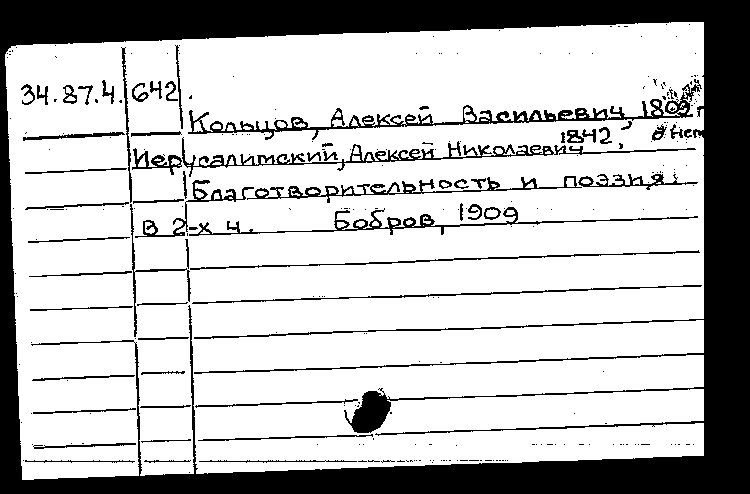 34.87.4.642.
Кольцов, Алексей Васильевич, 1809
1842, о нем
Иерусалимский, Алексей Николаевич
Благотворительность и поэзия.
В 2-х ч. Бобров, 1909